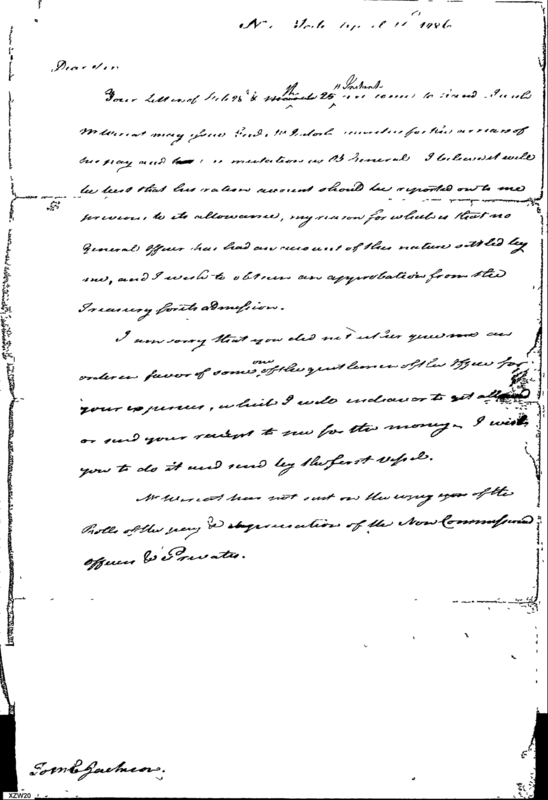 Dear Sir
Your Letters of Feby 28th & 25th Instant are come to hand I wish
Mr Wereat may give Genl. McIntosh for the arrears of
his pay and commutation as B General I believe it will
be best that his ration account should be reported on to me
previous to its allowance, my reason for which is that no
General Officer has had an account of this nature settled by
me, and I wish to obtain an approbation from the
Treasury for its admission.
I am sorry that you did not either give me an
order in favor of some one of the gentlemen of the Office for
your expences, which I will endeavor to get allowed
or send your receipt to me for the money, I wish
you to do it and send by the first vessel.
Mr Wereat has not sent on the copies of the
Rolls of the pay & depreciation of the Non Commissioned
Officers & Privates.
XZW20